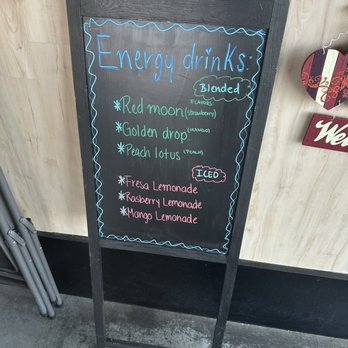 Energy drinks:
Blended
FLAVORS
*Red moon (strawberry)
*Golden drop (MANGO)
*Peach lotus (PEACH)
ICED
*Fresa Lemonade
*Rasberry Lemonade
*Mango Lemonade